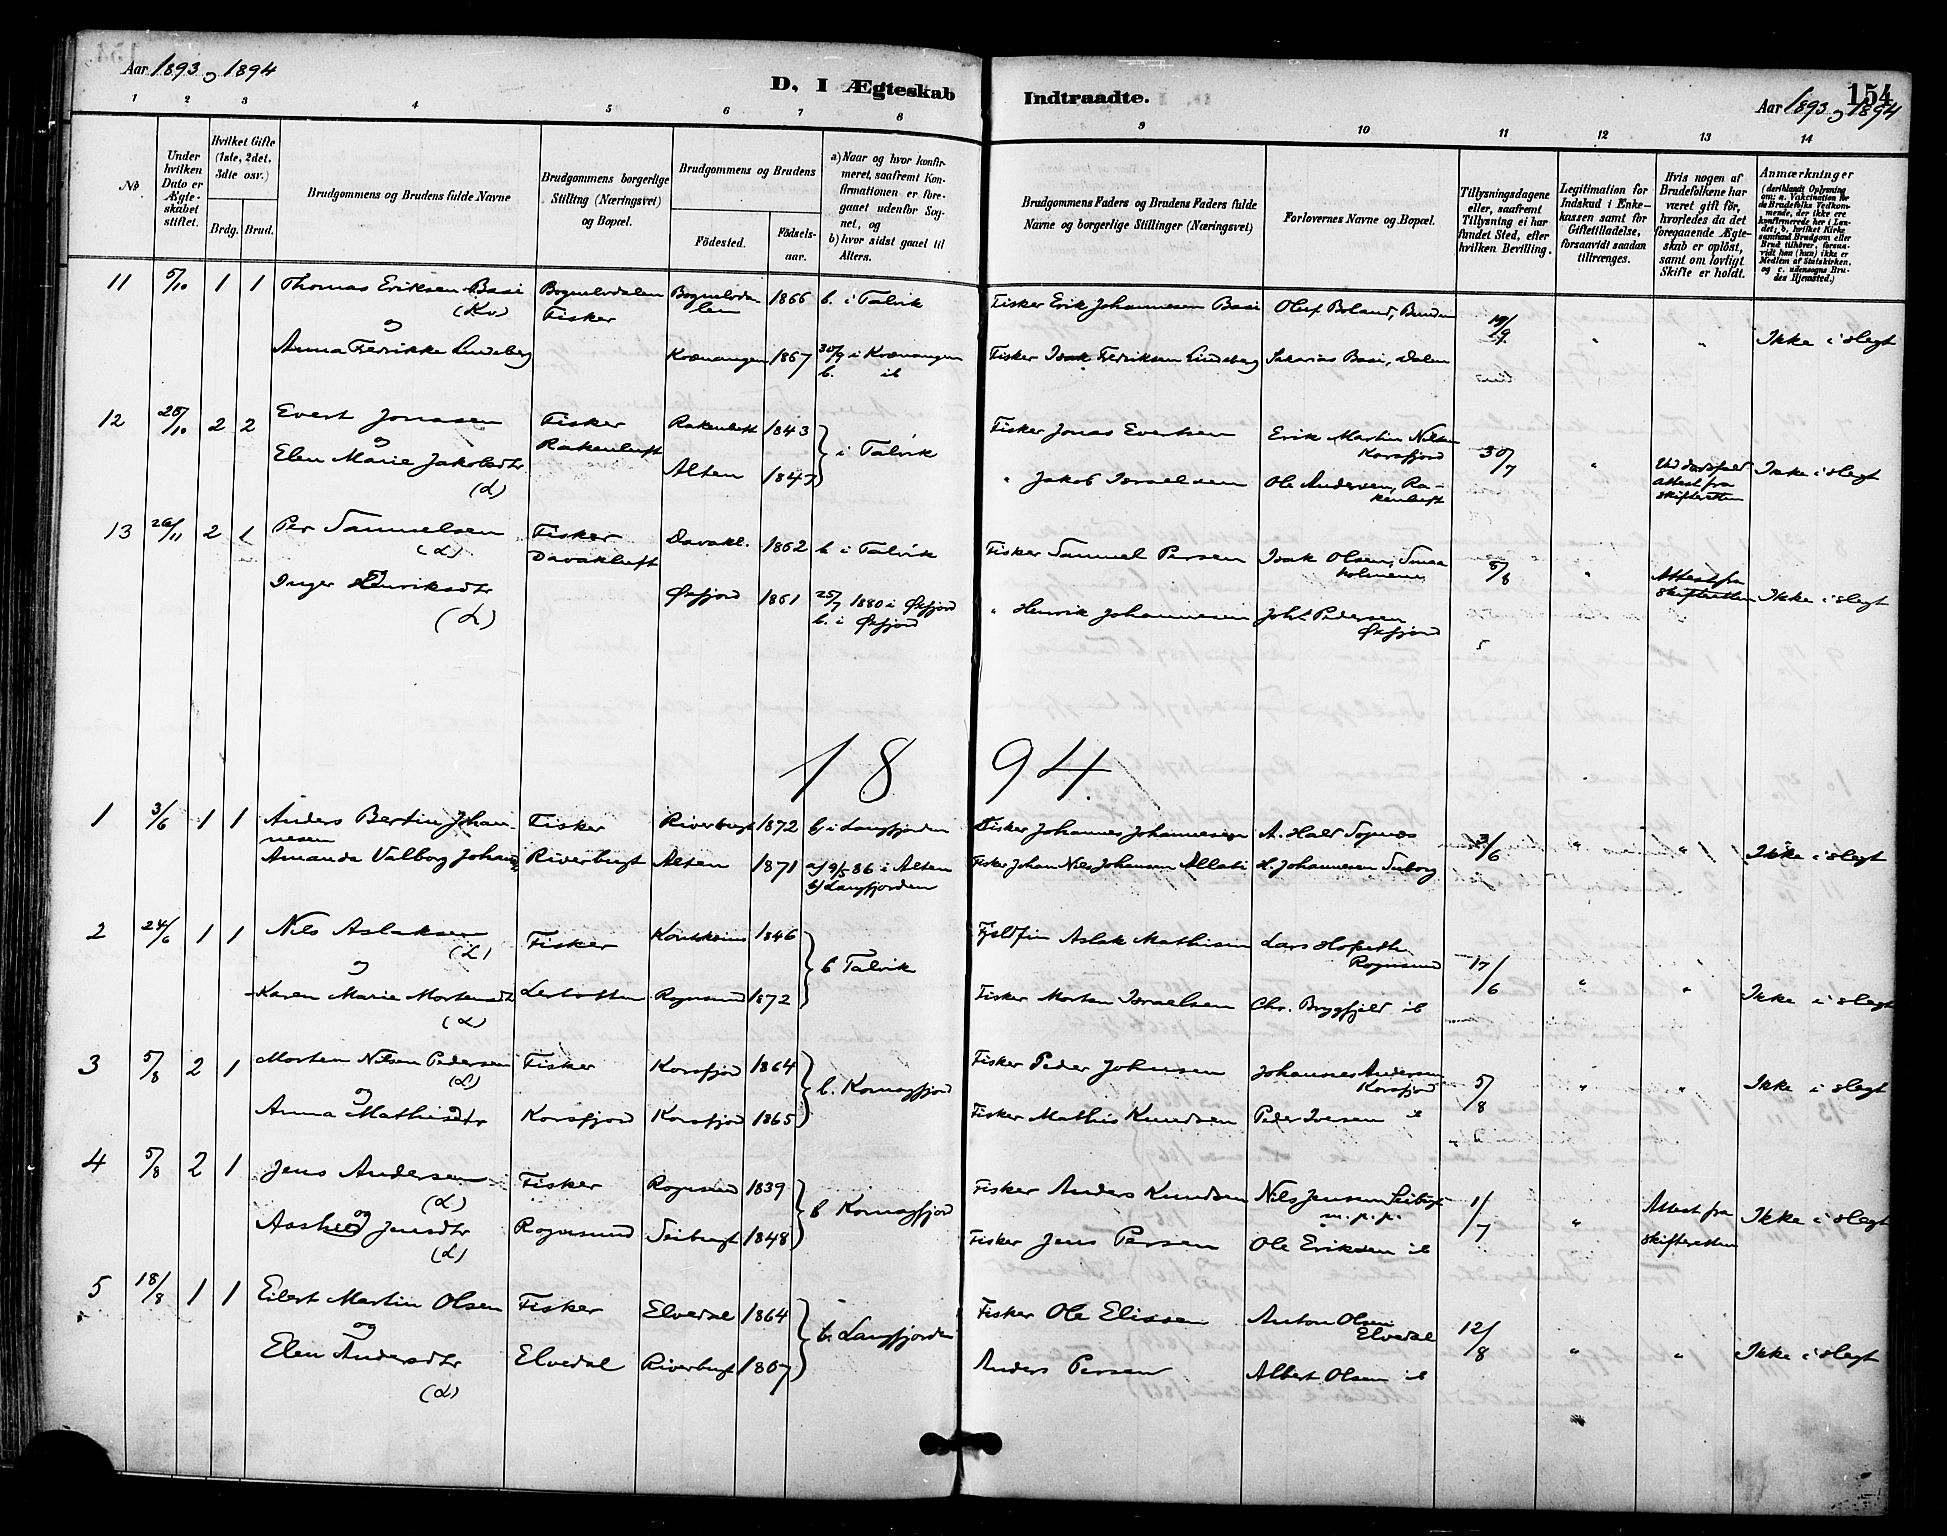 Aar 1893 og 1894
D. I Ægteskab Indtraadte.
154
Aar 1893 og 1894
1 2 3 4 5 6 7 8 9 10 11 12 13 14
No.
Under hvilken Dato er Ægteskabet stiftet.
Hvilket Gifte (1ste, 2det, 3die osv.)
Brdg. Brud.
Brudgommens og Brudens fulde Navne
Brudgommens borgerlige Stilling (Næringsvei) og Bopæl.
Brudgommens og Brudens
Födested.
Födselsaar.
a) Naar og hvor konfirmeret, saafremt Konfirmationen er foregaaet udenfor Sognet, og
b) hvor sidst gaaet til Alters.
Brudgommens Faders og Brudens Faders fulde Navne og borgerlige Stillinger (Næringsvei)
Forlovernes Navne og Bopæl.
Tillysningsdagene eller, saafremt Tillysning ei har fundet Sted, efter hvilken Bevilling.
Legitimation for Indskud i Enkekassen samt for Giftetilladelse, forsaavidt saadan tiltrænges.
Hvis nogen af Brudefolkene har været gift för, hvorledes da det foregaaende Ægteskab er oplöst, samt om lovligt Skifte er holdt.
Anmærkninger
(deriblandt Oplysning om: a. Vakcination for de Brudefolks Vedkommende, der ikke ere konfirmerede her i Landet; b. hvilket Kirkesamfund Brudgom eller Brud tilhörer, forsaavidt han (hun) ikke er Medlem af Statskirken, og c. udensogns Brudes Hjemsted.)
11 5/10 1 1 Thomas Eriksen Basi Bognelvdalen Bognelvda- 1866 b. i Talvik Fisker Erik Johannesen Basi Oluf Boland, Bunden
(Kv) Fisker len
og
Anna Fredrikke Lindberg Kvænangen 1867 30/9 i Kvænangen Fisker Isak Fedriksen Lindberg Sakarias Basi, Dalen " " Ikke i slegt
b. ib
12 2 2 Evert Jonassen Fisker Rakenluft 1843 Fisker Jonas Evertsen Erik Martin Nilsen
og Rakenluft i Talvik Korsfjord 30/7 "
Elen Marie Jakobsdtr Alten 1847 " Jakob Israelsen Ole Andersen, Ra- Attest fra Ikke i slegt
(L) kenluft skifteretten
13 26/11 2 1 Per Samuelsen Fisker Davakl. 1862 b i Talvik Fisker Samuel Persen Isak Olsen, Smaa-
(L) Davakluft holmene 5/8 " Attest fra
og skifteretten Ikke i slegt
Inger Henriksdtr Øxfjord 1861 25/7 1880 i Øxfjord " Henrik Johannesen Joh. Pedersen
(L) b. i Øxfjord Øxfjord
1894.
1 3/6 1 1 Anders Bertin Johan- Fisker Riverbugt 1872 b) i Langfjorden Fisker Johannes Johannesen A. Hald Sopnes 3/6 " "
nesen
Amanda Valborg Johans Riverbugt Alten 1871 a) 9/5 86 i Alten Fisker Johan Nils Johansen Allati H. Johannesen Ikke i slegt
b) Langfjorden
2 24/6 1 1 Nils Aslaksen Fisker 1846 Fjeldfin Aslak Mathisen Lars
(L) b Talvik Rognsund 17/6 " "
og
Karen Marie Mortensdtr Lerbotten Rognsund 1872 Fisker Morten Israelsen Chr. Bryggfjeld ib Ikke i slegt
(L)
3 5/8 2 1 Morten Nilsen Pedersen Fisker Korsfjord 1864 Fisker Peder Johnsen Johannes Andersen
(L) b. Komagfjord Korsfjord 5/8 " " Ikke i slegt
og
Anna Mathisdtr Korsfjord Korsfjord 1865 Fisker Mathis Knudsen Peder Iversen ib
4 5/8 2 1 Jens Andersen Fisker Rognsund 1839 Fisker Anders Knudsen Nils Jensen Seibugt 1/7 " Attest fra Ikke i slegt
(L) b Komagfjord m. p. p.
og
Jensdtr Rognsund Seibugt 1848 Fisker Jens Persen Ole Eriksen ib skifteretten
(L)
5 18/8 1 1 Eilert Martin Olsen Fisker Elvedal 1864 Fisker Ole Elissen Anton Olsen
og b. Langfjorden Elvedal 12/8 " " Ikke i slegt
Elen Andersdtr Elvedal Riverbugt 1867 Anders Persen Albert Olsen ib
(L)